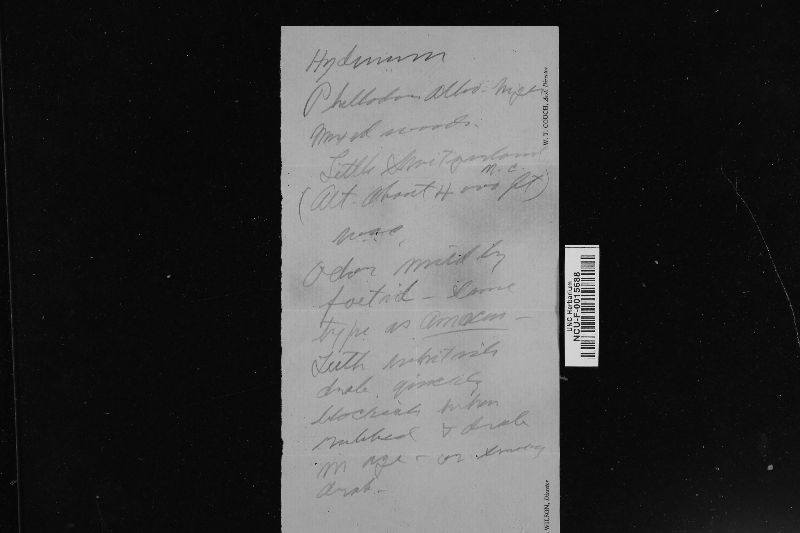 Hydnum
Phellodon Albo-niger
Mixed woods.
Little Switzerland
N.C.
(Alt. About 4000 ft)
Odor mildly
foetid - same
type as amicus -
Teeth whitish
drab, quickly
blackish when
rubbed & drab
in age - or smoky
drab.
W. T. COUCH, Ass't. Director
WILSON, Director
UNC Herbarium
NCU-F-0015688